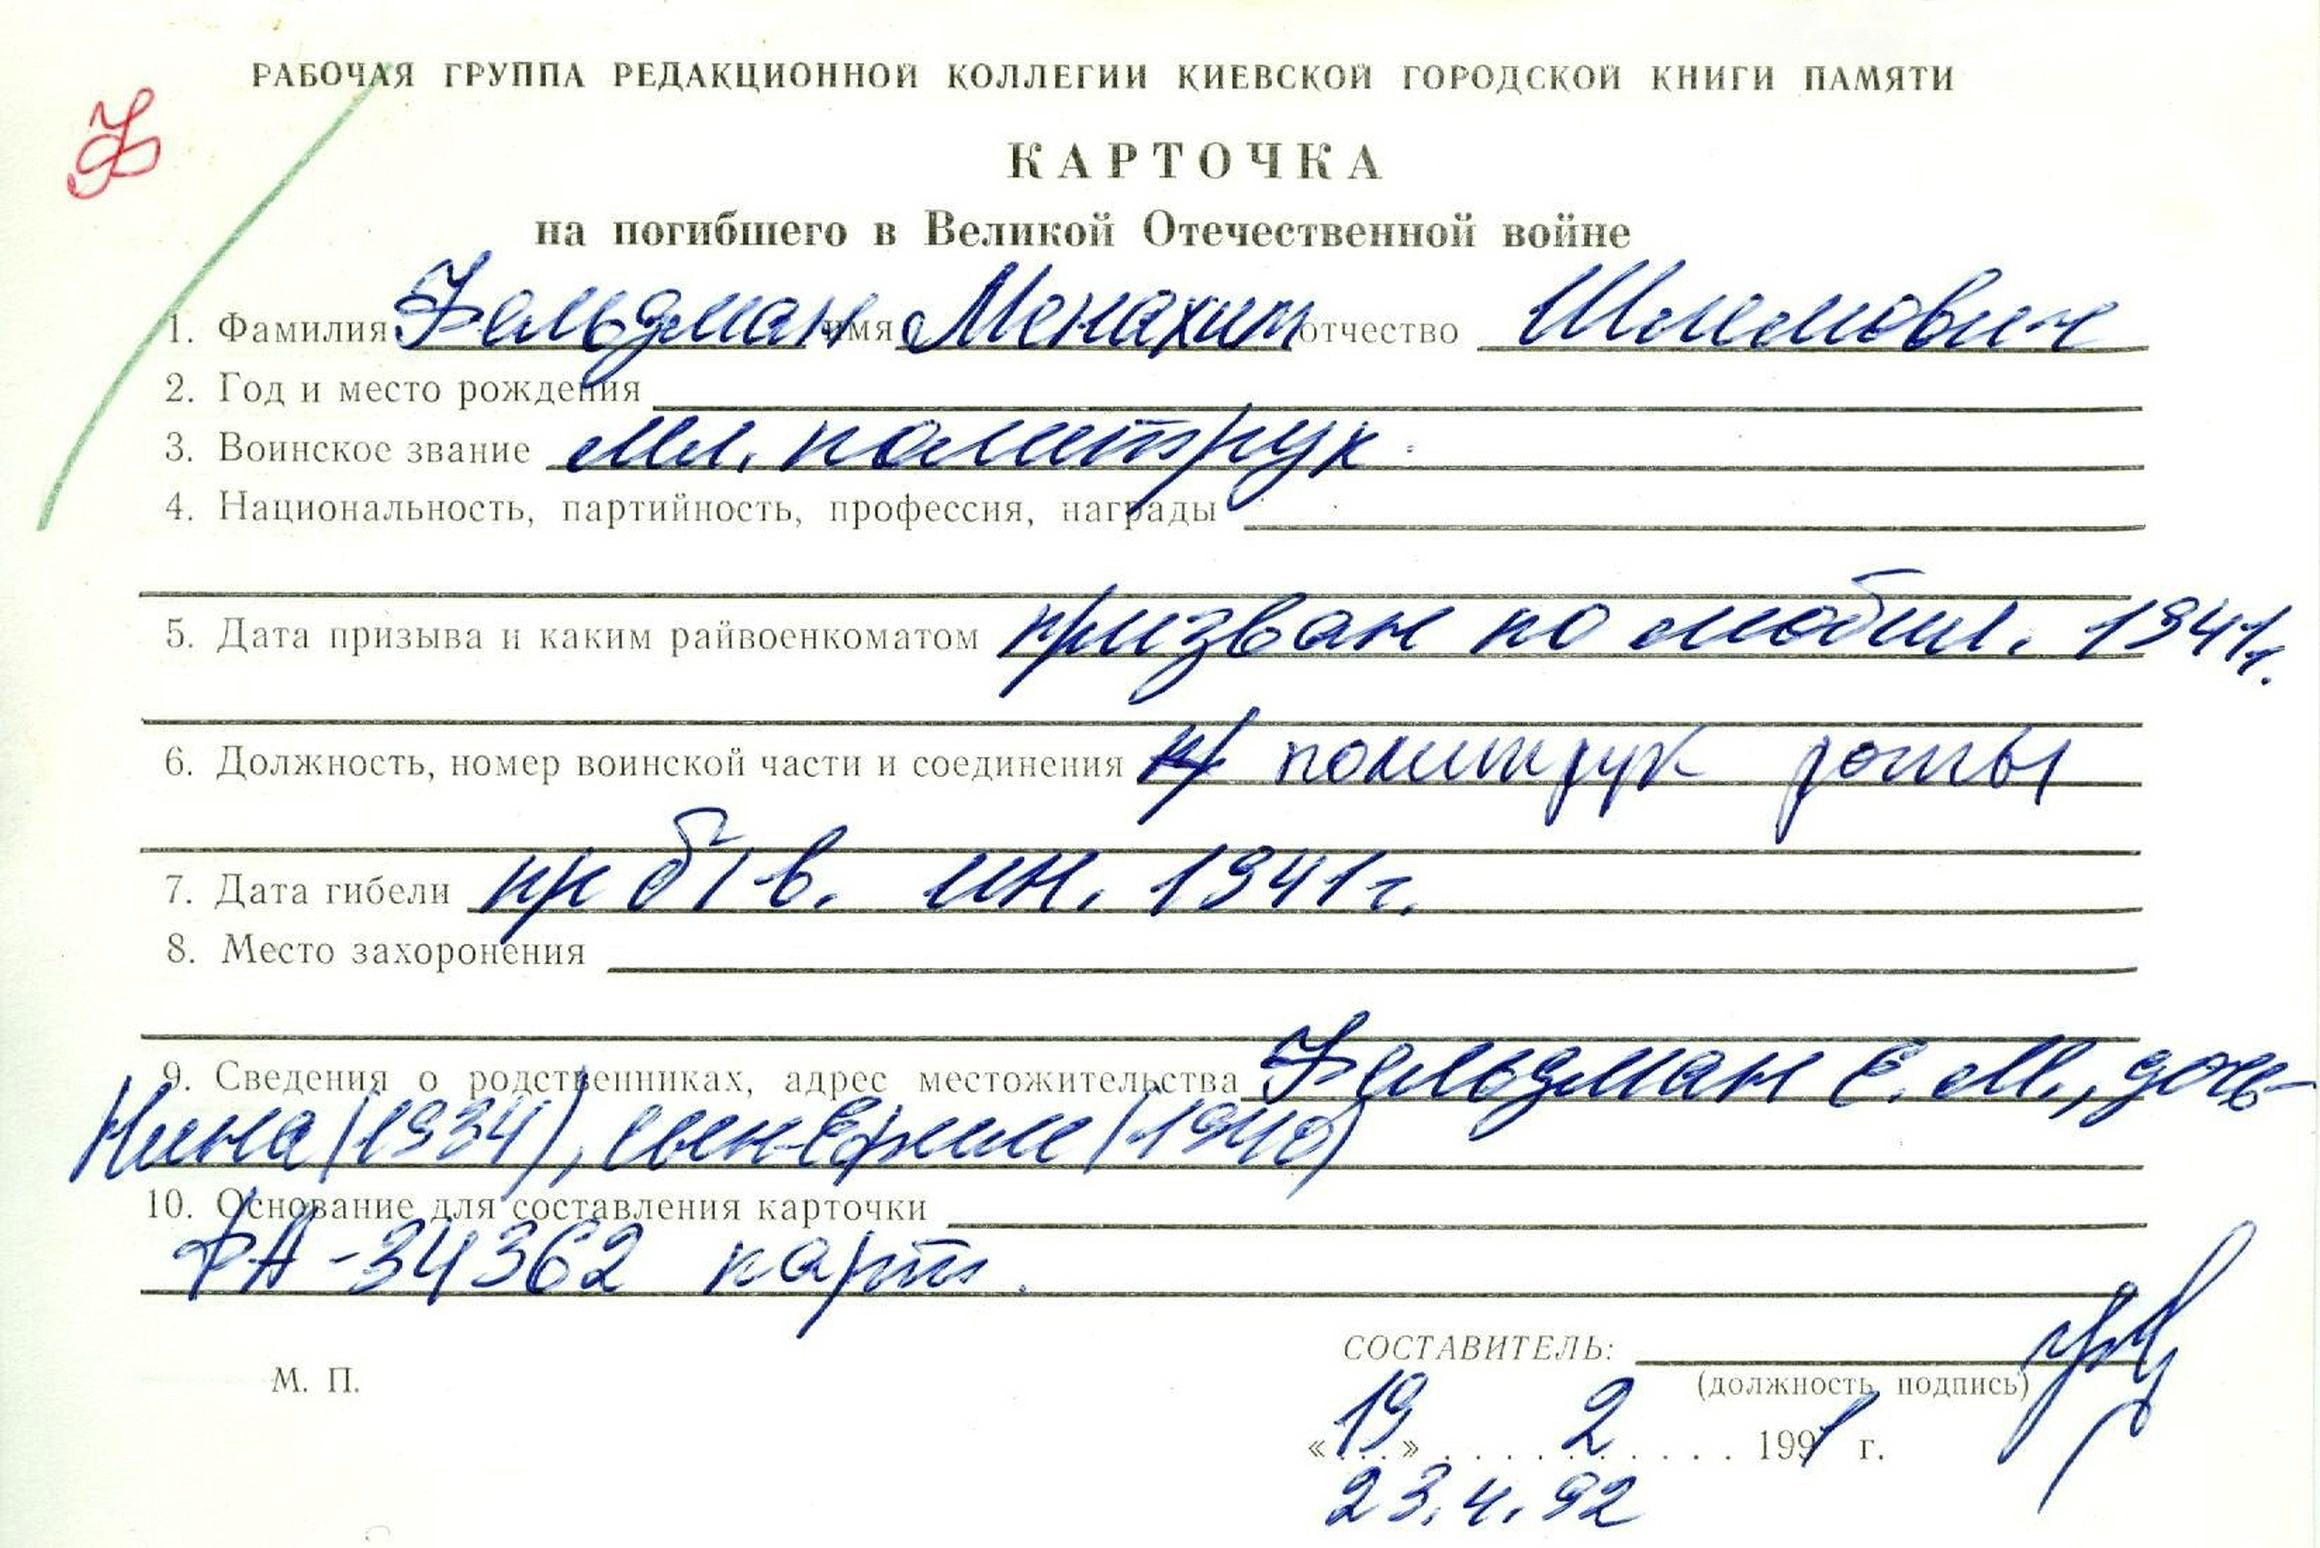 Ф
РАБОЧАЯ ГРУППА РЕДАКЦИОННОЙ КОЛЛЕГИИ КИЕВСКОЙ ГОРОДСКОЙ КНИГИ ПАМЯТИ
КАРТОЧКА
на погибшего в Великой Отечественной войне
1. Фамилия Фельдман имя Менахим отчество Шлемович
2. Год и место рождения
3. Воинское звание Мл. политрук
4. Национальность, партийность, профессия, награды
5. Дата призыва и каким райвоенкоматом призван по мобил. 1941г.
6. Должность, номер воинской части и соединения политрук роты
7. Дата гибели пр б/в. ин. 1941г.
8. Место захоронения
9. Сведения о родственниках, адрес местожительства Фельдман Е.М., дочь
Нина (1934), сын-Ефим (1940)
10. Основание для составления карточки
ФА-34362 карт.
СОСТАВИТЕЛЬ:
М. П.
(должность, подпись)
«19» 2 1991 г.
23.4.92